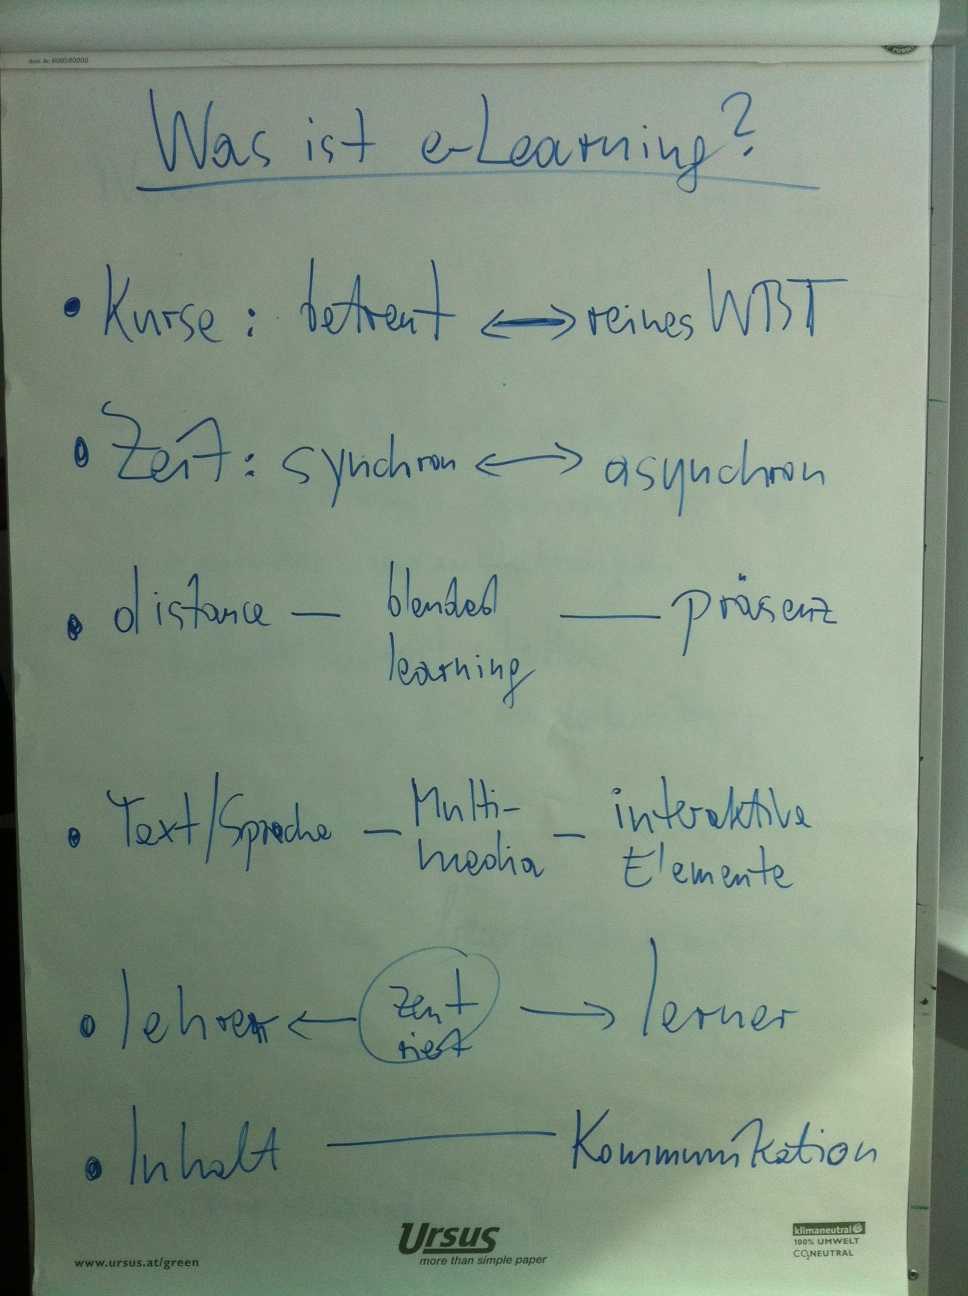 Was ist e-Learning?
• Kurse: betreut ↔ reines WBT
• Zeit: synchron ↔ asynchron
• distance — blended — präsenz
learning
• Text/Sprache — Multi- — interaktive
media Elemente
• lehrer ← zent → lerner
riert
• Inhalt — Kommunikation
Ursus
more than simple paper
www.ursus.at/green
klimaneutral
100% UMWELT
CO2NEUTRAL